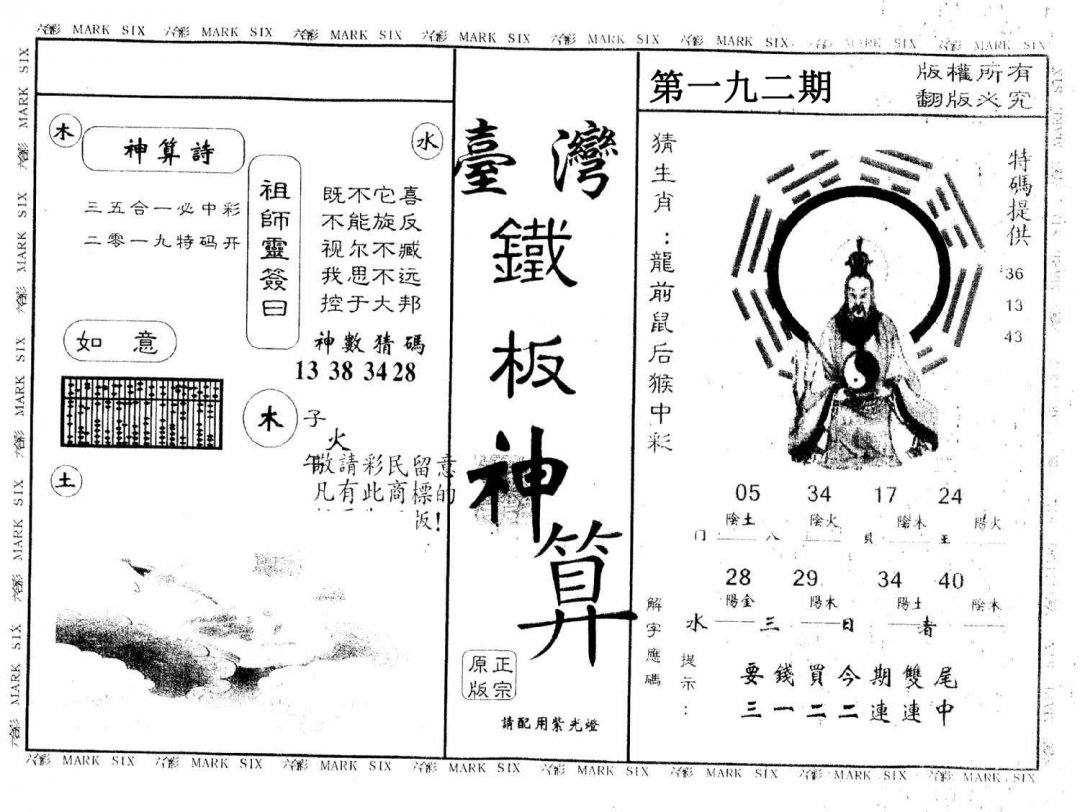 六合彩 MARK SIX 六合彩 MARK SIX 六合彩 MARK SIX 六合彩 MARK SIX 六合彩 MARK SIX 六合彩 MARK SIX 六合彩 MARK SIX 六合彩 MARK SIX
木
神算詩
水
三五合一必中彩
二零一九特码开
祖師靈簽曰
既不它喜
不能旋反
视尔不臧
我思不远
控于大邦
神數猜碼
13 38 34 28
如意
木
子
火
午
敬請彩民留意
凡有此商標的
版!
土
臺灣
鐵
板
神
算
正宗
原版
請配用紫光燈
第一九二期
版權所有
翻版必究
猜生肖:龍前鼠后猴中彩
特碼提供
36
13
43
05 34 17 24
陰土 陰火 陰木 陽火
门 八 貝 王
28 29 34 40
陽金 陽木 陽土 陰木
水 三 日 者
解字應碼
提示:
要錢買今期雙尾
三一二二連連中
六合彩 MARK SIX 六合彩 MARK SIX 六合彩 MARK SIX 六合彩 MARK SIX 六合彩 MARK SIX 六合彩 MARK SIX 六合彩 MARK SIX 六合彩 MARK SIX